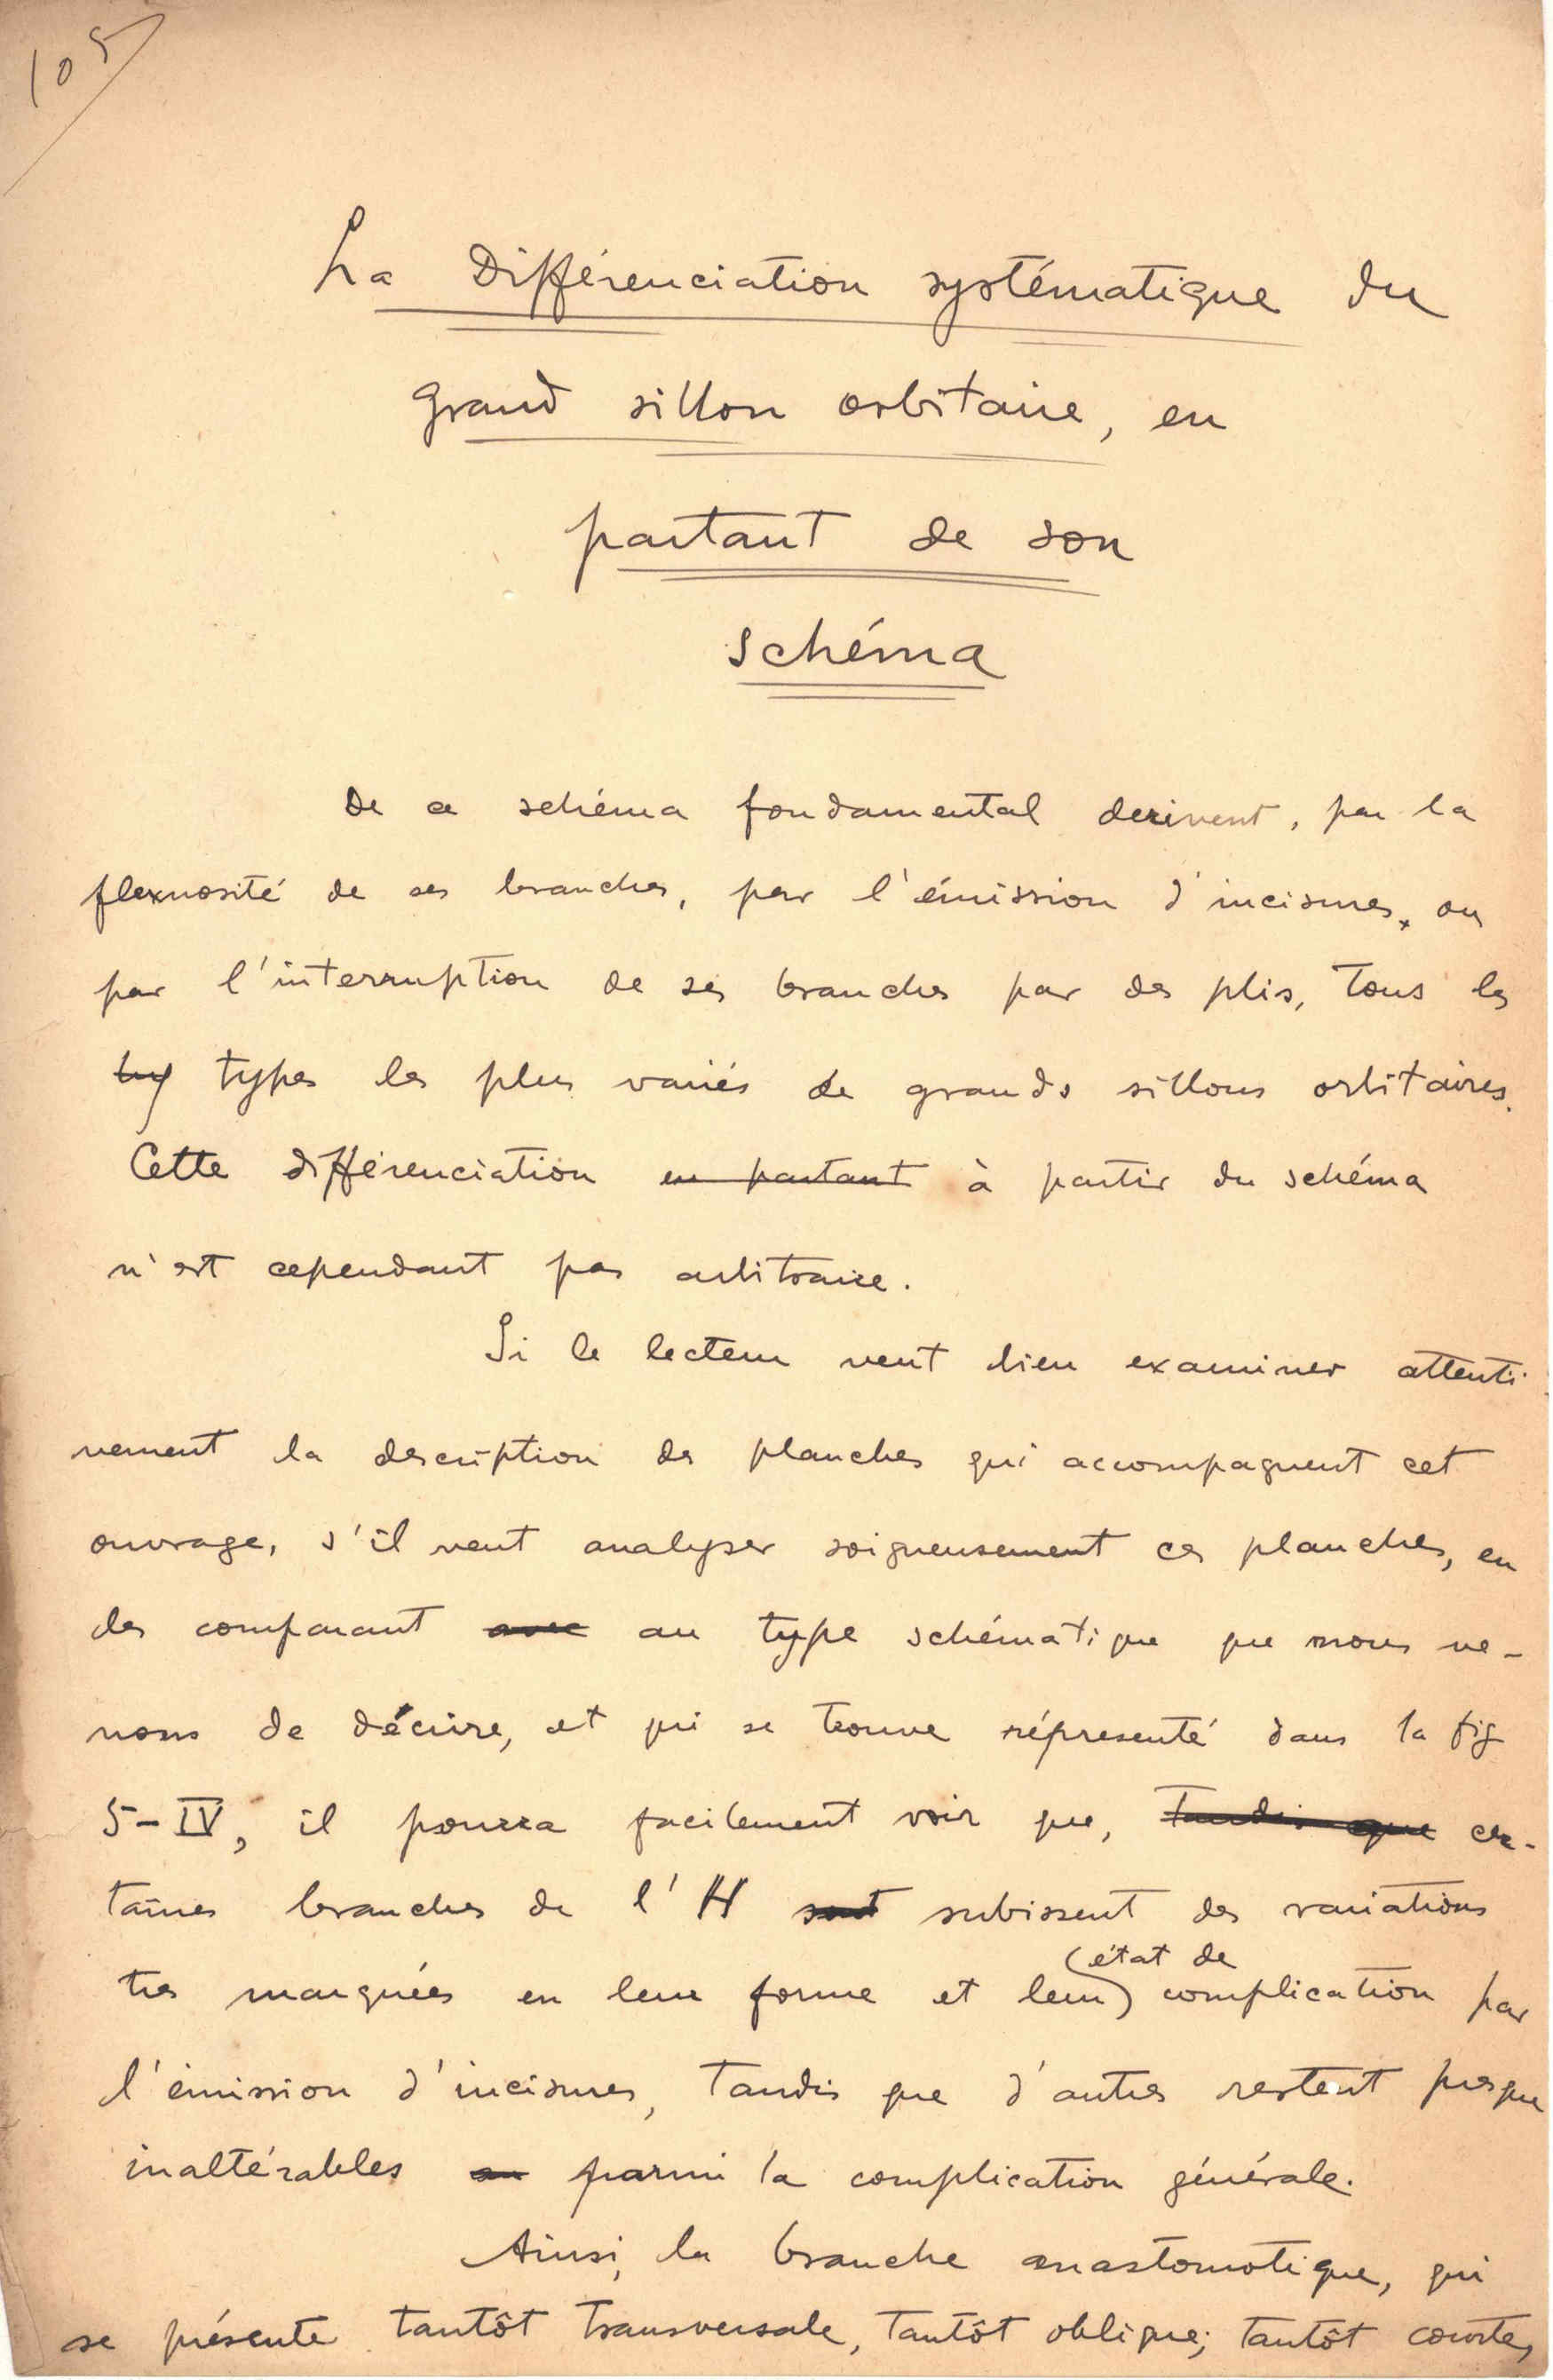 105
La Différenciation systématique du
grand sillon orbitaire, en
partant de son
schéma
De ce schéma fondamental derivent, par la
flexuosité de ses branches, par l'émission d'incisures, ou
par l'interruption de ses branches par des plis, tous les
types les plus variés de grands sillons orbitaires.
Cette différenciation en partant à partir du schéma
n'est cependant pas arbitraire.
Si le lecteur veut bien examiner attenti-
vement la description des planches qui accompagnent cet
ouvrage, s'il veut analyser soigneusement ces planches, en
les comparant avec au type schématique que nous ve-
nons de décrire, et qui se trouve réprésenté dans la fig
5-IV, il pourra facilement voir que, tandis que cer-
taines branches de l'H sont subissent des variations
état de
tres marquées en leur forme et leur complication par
l'émission d'incisures, tandis que d'autres restent presque
inaltérables en parmi la complication générale.
Ainsi, la branche anastomotique, qui
se présente tantôt transversale, tantôt oblique; tantôt courte,